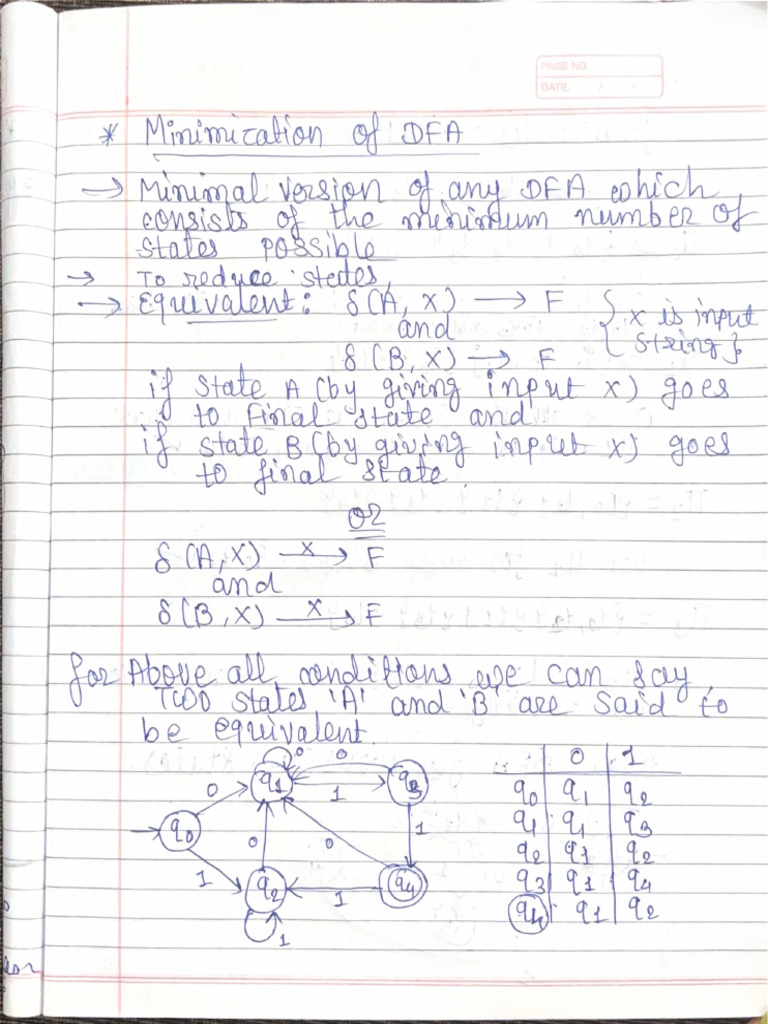 PAGE NO.
DATE. / /
* Minimization of DFA
→ Minimal version of any DFA which
consists of the minimum number of
states possible
→ To reduce states,
→ Equivalent: δ(A, x) → F { x is input
and
δ(B, x) → F string }
if state A (by giving input x) goes
to final state and
if state B (by giving input x) goes
to final state
or
δ(A, x) -x-> F
and
δ(B, x) -x-> F
for Above all conditions we can say
Two states 'A' and 'B' are said to
be equivalent.
q0 q1 q3 q2 q4
0 0 0 1 1 0 0 1 1 1
0 1
q0 q1 q2
q1 q1 q3
q2 q1 q2
q3 q1 q4
q4 q1 q2